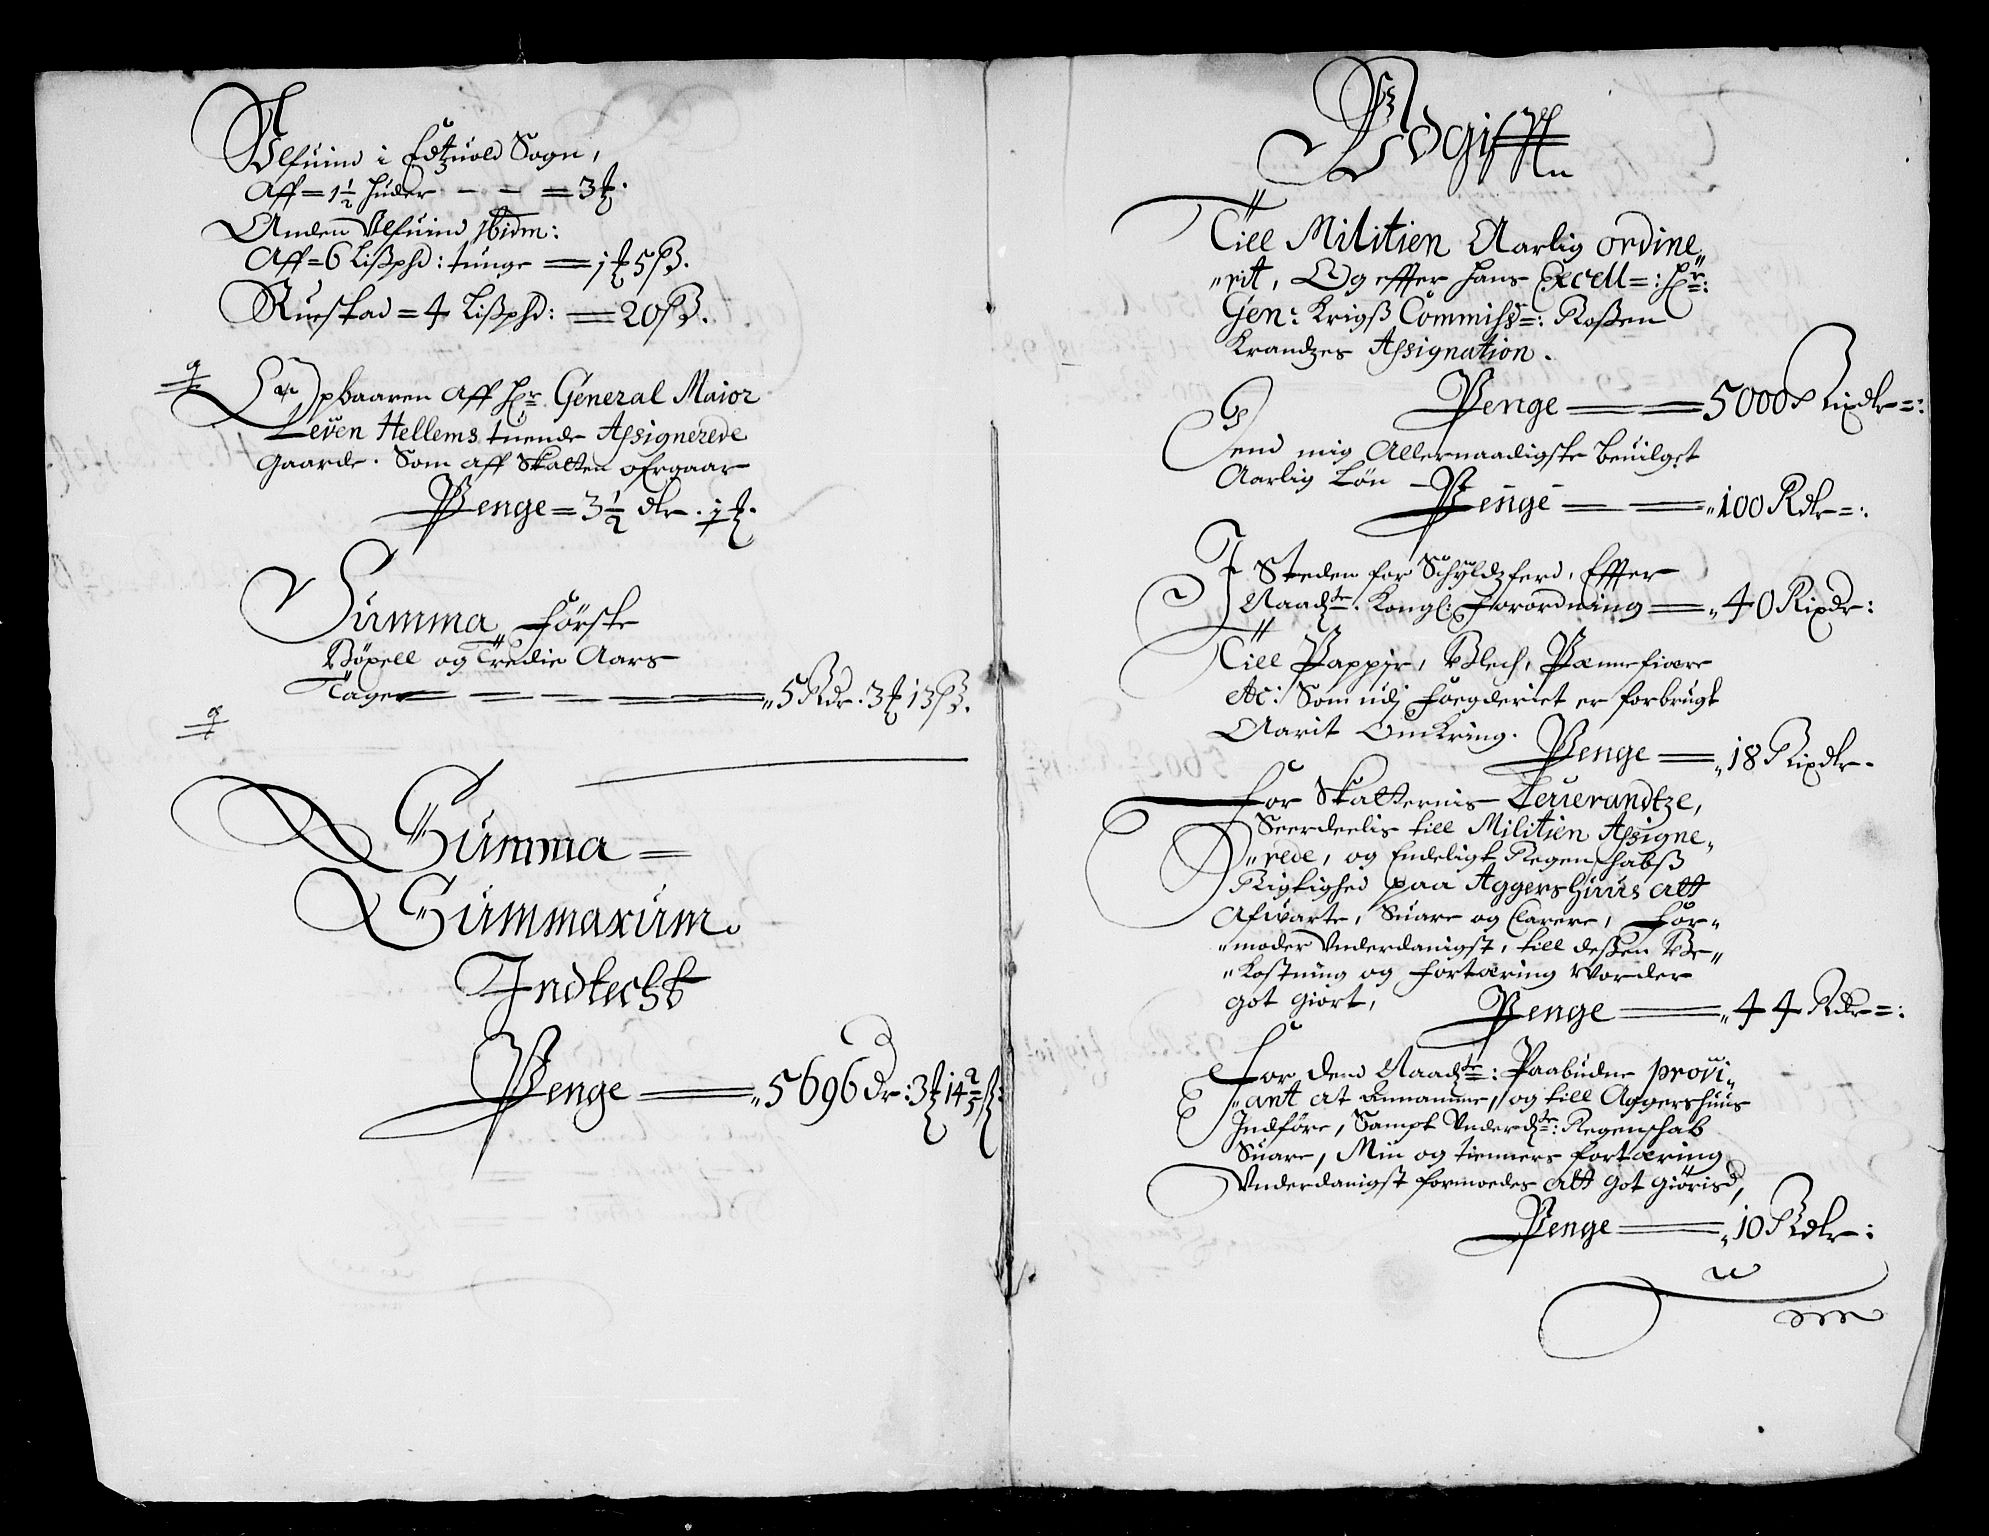 Ulfuind i Edtzuold Sogn,
Aff = 1½ huder — — = 3 ƶ.
Anden Ulfuind ibidm:
Aff = 6 Lißphd: tunge = 1 ƶ 5 ß.
Ruestad = 4 Lißphd: = 20 ß.
Opbaaren Aff Hr. General Maior
Leven Hellems tuende Assignerede
Gaarde. Som aff Skatten ofrgaar
Penge = 3½ dlr. 1 ƶ.
Summa Förste
Böxell og Tredie Aars
Tage — — — 5 Rdr. 3 ƶ 13 ß.
Summa =
Summarum.
Indtecht
Penge = 5696 Dr: 3 ƶ 14 2/5 ß:
Udgifft
Till Militien Aarlig ordine„
„rit, Og effter hans Excell=: Hr=:
Gen: Krigß Commiss=: Roßen
Krandzes Assignation.
Penge — — 5000 Rixdlr=:
Dend mig Allernaadigste beuilget
Aarlig Løn —
Penge — — „100 Rdlr=:
I Steden for Schyldzferd, Effter
Naadste. Kongl: Forordning = „40 Rixdr:
Till Pappir, Blech, Pennefiære
etc: Som udj Foegderiet er forbrugt
Aarit Omkring.
Penge = „18 Rixdlr.
For Skatternis Leuerandtze,
Seerdeelis till Militien Assigne„
„rede, og Endeligt Regenschabß
Rigtighed paa Aggershuus att
Afwarte, Suare og Clarere, For„
„moder Underdanigst, till deßen Be„
„kostning og fortæring Worder
got giort,
Penge = „44 Rdlr=:
For dend Naadste=: Paabudne provi„
„ant at Annamme, og till Aggershuus
Indföre, Sampt Underdste=: Regenschab
Suare, Min og tienners fortæring
Underdanigst formoedes att got giörisd,
Penge = „10 Rdlr: